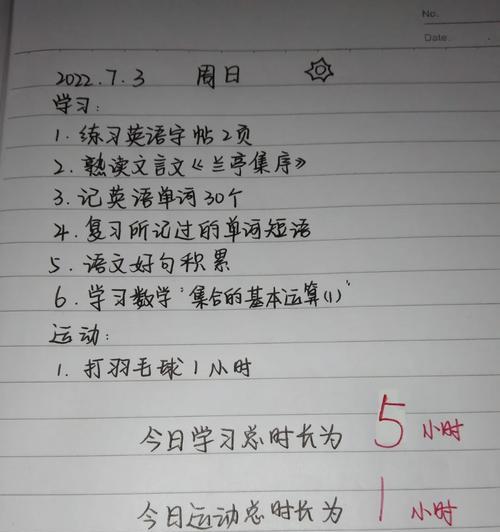 No.
Date.
2022.7.3 周日
学习:
1. 练习英语字帖2页
2. 熟读文言文《兰亭集序》
3. 记英语单词30个
4. 复习所记过的单词短语
5. 语文好句积累
6. 学习数学“集合的基本运算(1)”
运动:
1. 打羽毛球1小时
今日学习总时长为 5 小时
今日运动总时长为 1 小时